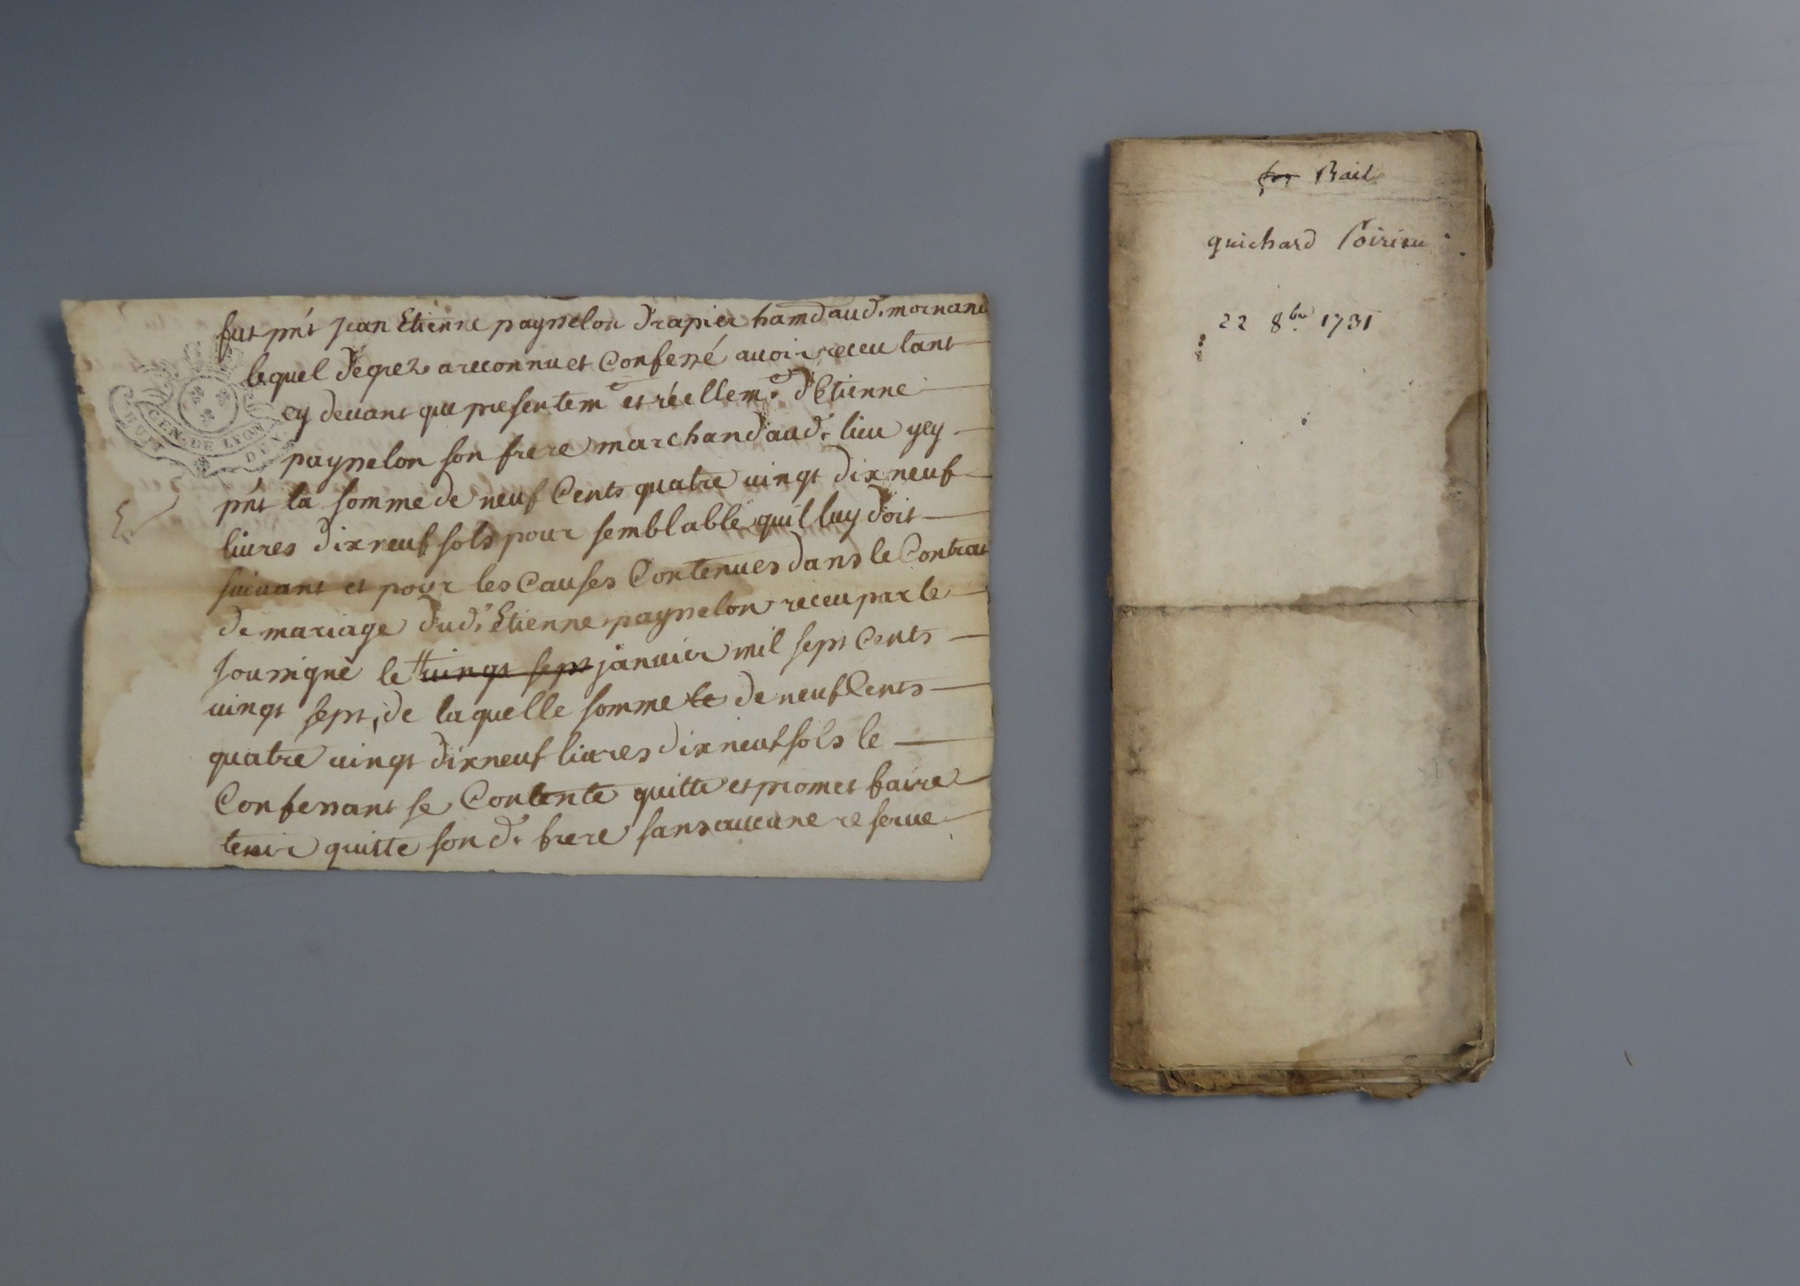 fut pnt Jean Etienne paysselon drapier hamd aud. mornand
lequel de grez a reconnu et Confessé avoir receu tant
cy devant que presentemt et réellemt. d'Etienne
paysselon son frere marchand aud. lieu ycy
pnt la somme de neuf Cents quatre vingt dix neuf
livres dix neuf sols pour semblable quil luy doit
suivant et pour les Causes Contenues dans le Contrat
de mariage dud. Etienne paysselon receu par le
soussigné le vingt sept janvier mil sept Cents
vingt sept, de laquelle somme le de neuf Cents
quatre vingt dix neuf livres dix neuf sols le
Confessant se Contente quitte et promet faire
tenir quitte son d. frere sans aucune reserve
GEN. DE LYON
Bail
guichard Poirieu
22 8bre 1731